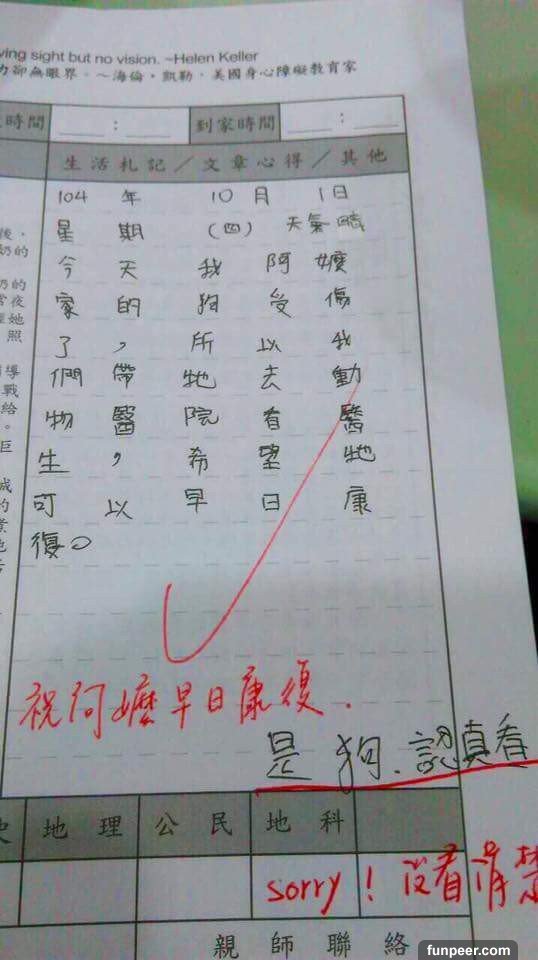 ving sight but no vision. ~Helen Keller
力卻無眼界。～海倫・凱勒，美國身心障礙教育家
時間 __ : __ 到家時間 __ : __
生活札記／文章心得／其他
104 年 10 月 1日
星期(四) 天氣晴
今天我阿嬤
家的狗受傷
了，所以我
們帶牠去動
物醫院看醫
生，希望牠
可以早日康
復。
後，
奶的
奶的
常夜
她
照
導
戰
給
。
巨
成
的
業
他
祝阿嬤早日康復.
是狗、認真看
地理 公民 地科
sorry! 沒看清楚
親師聯絡
funpeer.com